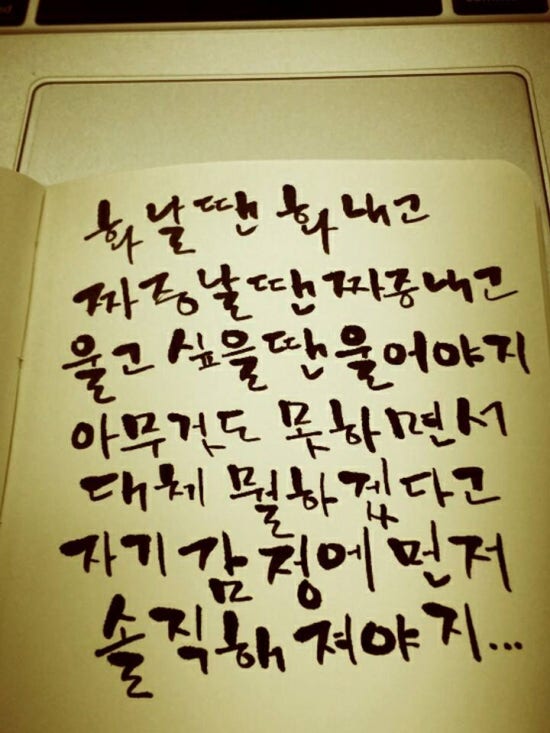 화날땐 화내고
짜증날땐 짜증내고
울고 싶을땐 울어야지
아무것도 못하면서
대체 뭘하겠다고
자기 감정에 먼저
솔직해져야지...